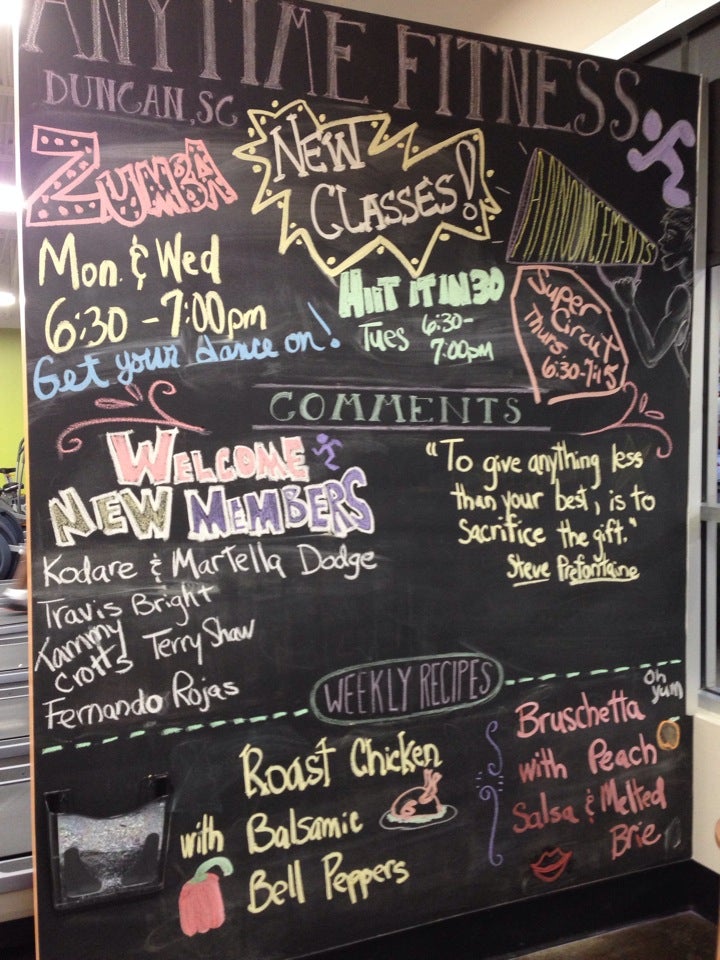 ANYTIME FITNESS
DUNCAN, SC
ZUMBA
Mon. & Wed
6:30 - 7:00pm
Get your dance on!
NEW
CLASSES!
HIIT IT IN 30
Tues 6:30-
7:00PM
ANNOUNCEMENTS
Super
Circut
Thurs
6:30-7:15
COMMENTS
WELCOME
NEW MEMBERS
Kodare & Martella Dodge
Travis Bright
Tammy
Crotts
Terry Shaw
Fernando Rojas
"To give anything less
than your best, is to
sacrifice the gift."
Steve Prefontaine
WEEKLY RECIPES
Roast Chicken
with Balsamic
Bell Peppers
oh
yum
Bruschetta
with Peach
Salsa & Melted
Brie